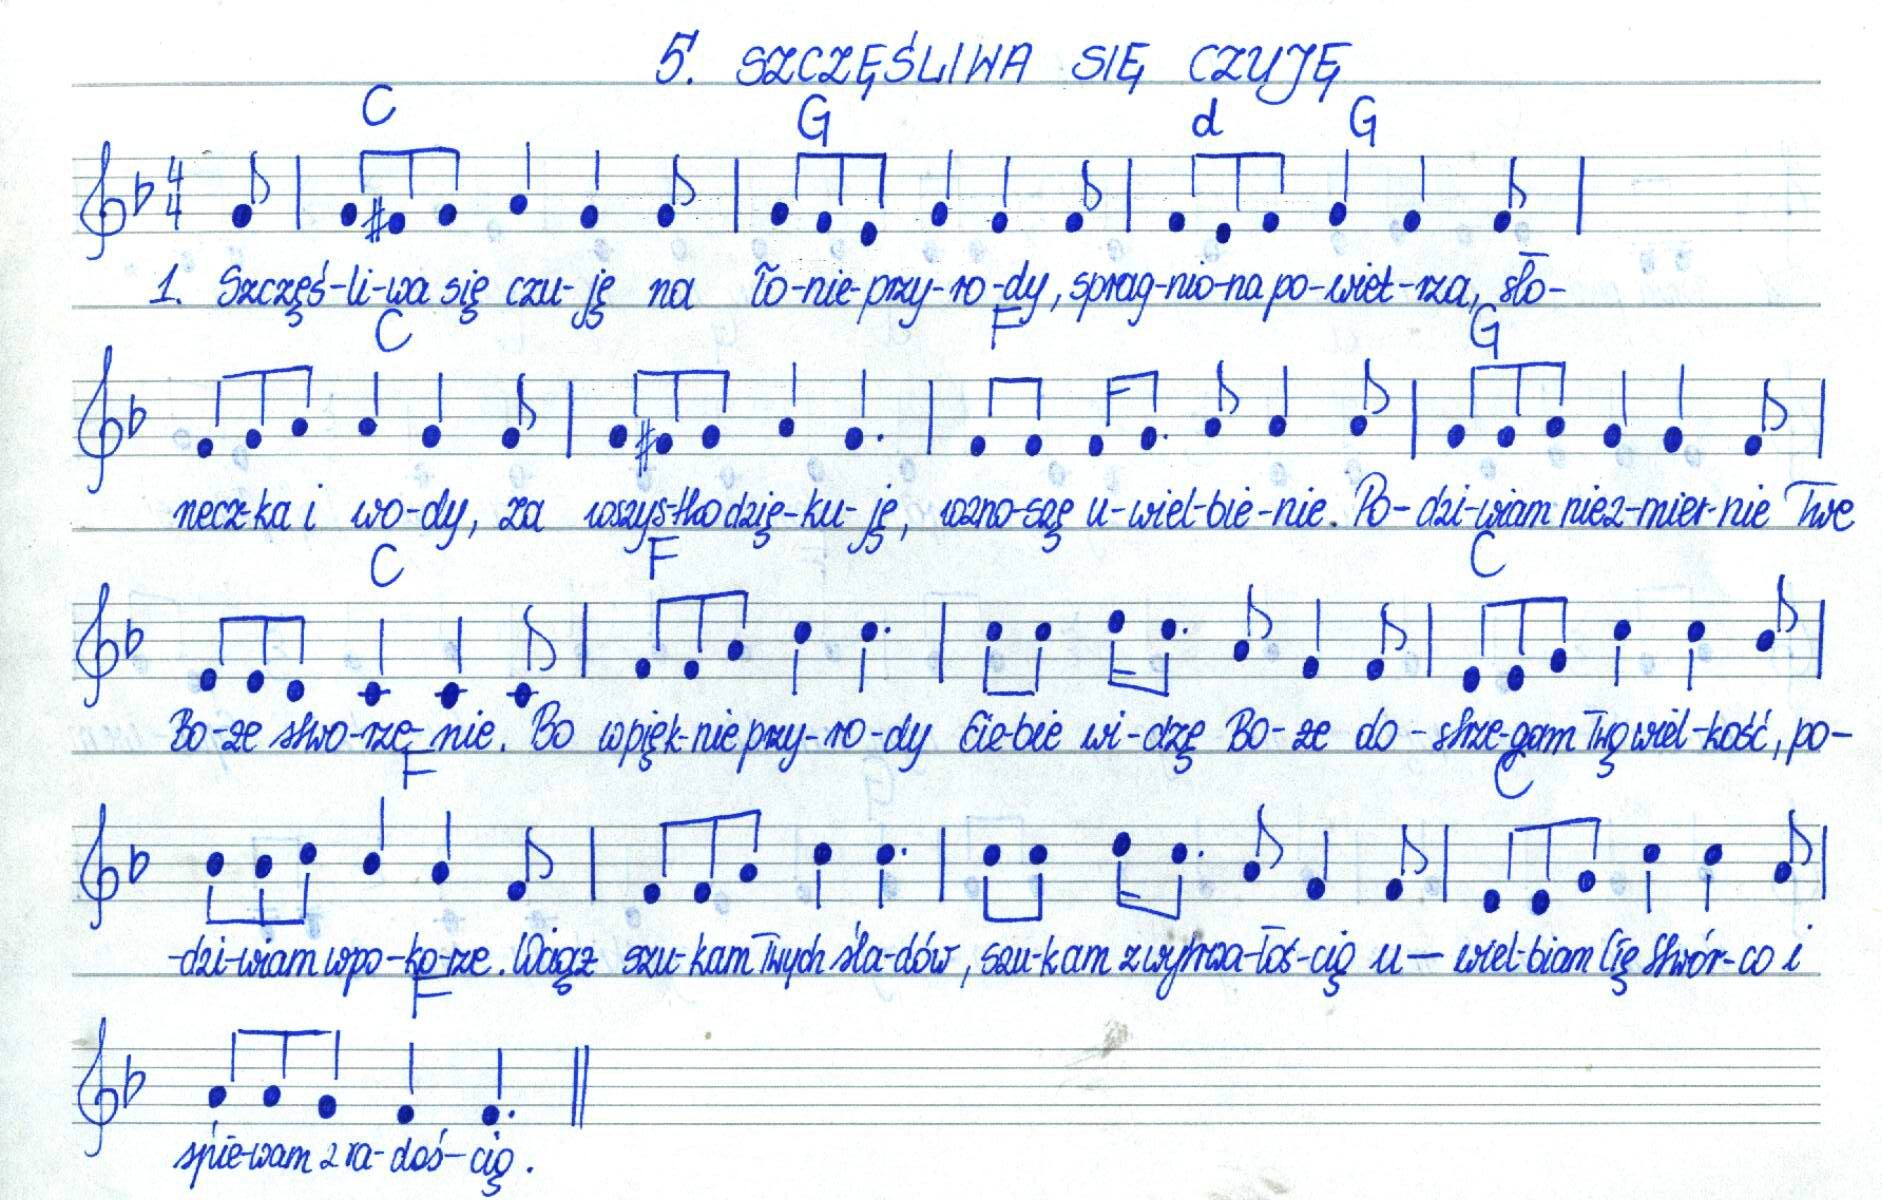 5. SZCZĘŚLIWA SIĘ CZUJĘ
C G d G
4
4
1. Szczęś-li-wa się czu-ję na ło-nie-przy-ro-dy, sprag-nio-na po-wiet-rza, sło-
C F G
necz-ka i wo-dy, za wszys-tko dzię-ku-ję, wzno-szę u-wiel-bie-nie. Po-dzi-wiam niez-mier-nie Twe
C F C
Bo-że stwo-rze-nie. Bo w pięk-nie przy-ro-dy Cie-bie wi-dzę Bo-że do-strze-gam Twą wiel-kość, po-
F C
-dzi-wiam w po-ko-rze. Wciąż szu-kam Twych śla-dów, szu-kam z wytrwa-łoś-cią u-wiel-biam Cię Stwór-co i
F
śpie-wam z ra-doś-cią.